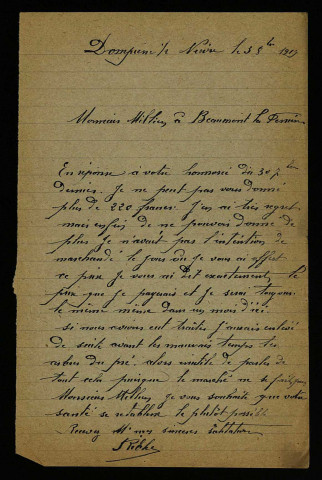 Dompierre s/ Nièvre le 3 8bre 19
Monsieur Millien à Beaumont la Ferrière
En réponse à votre honnoré du 30 7bre
dernier. Je ne peut pas vous donné
plus de 220 francs. J'en ai très regret
mais enfin je ne pouvais donné de
plus Je n'avait pas l'intention de
marchandé le jour ou Je vous ai offert
ce prix Je vous ai dit exactement, le
prix que je payerais et Je serai toujours
le même même dans un mois d'ici.
si nous avions eut traités J'aurais enlevé
de suite avant les mauvais temps les
arbres du pré. alors inutile de parler de
tout cela puisque le marché ne se fait pas
Monsieur Millien Je vous souhaite que votre
santé se rétablisse le plutôt possible
Recevez Mr mes sincères salutations